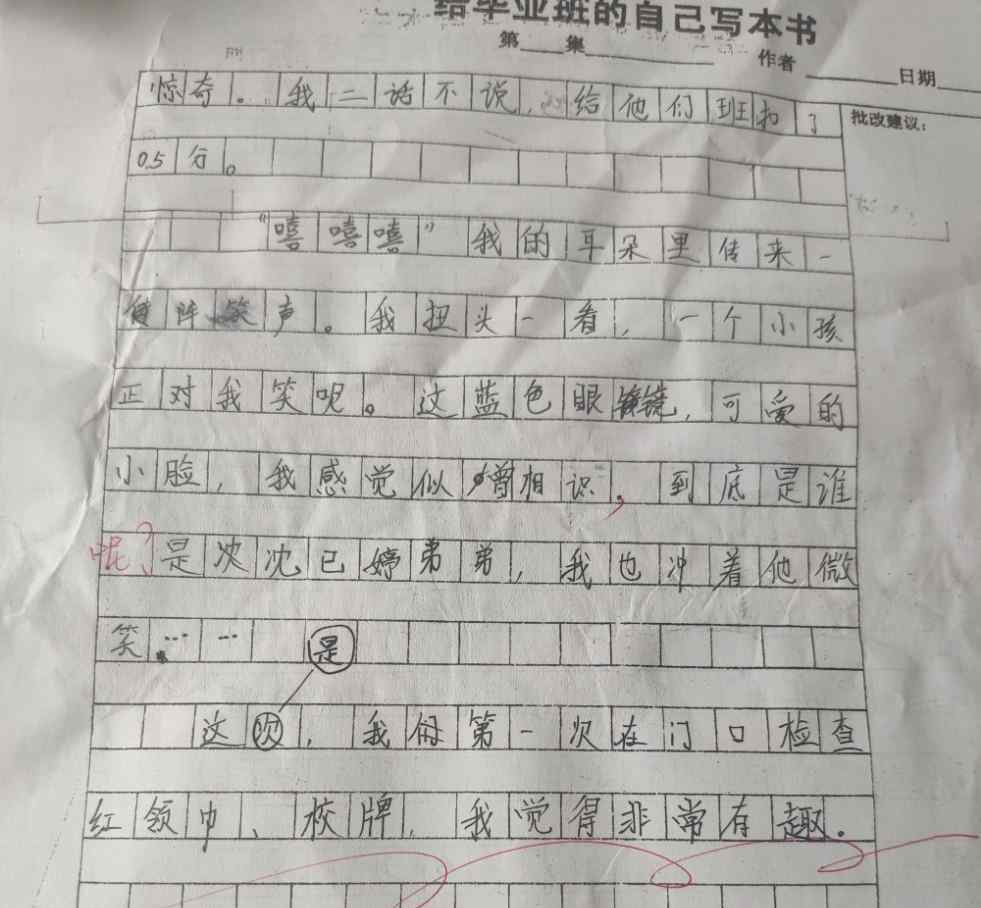 给毕业班的自己写本书
第____集____ 作者____日期____
批改建议：
惊奇。我二话不说，给他们班扣了
0.5分。
“嘻嘻嘻”我的耳朵里传来一
阵笑声。我扭头一看，一个小孩
正对我笑呢。这蓝色眼镜，可爱的
小脸，我感觉似曾相识，到底是谁
呢？是次沈已婷弟弟，我也冲着他微
笑……
是
这次，我第一次在门口检查
红领巾、校牌，我觉得非常有趣。